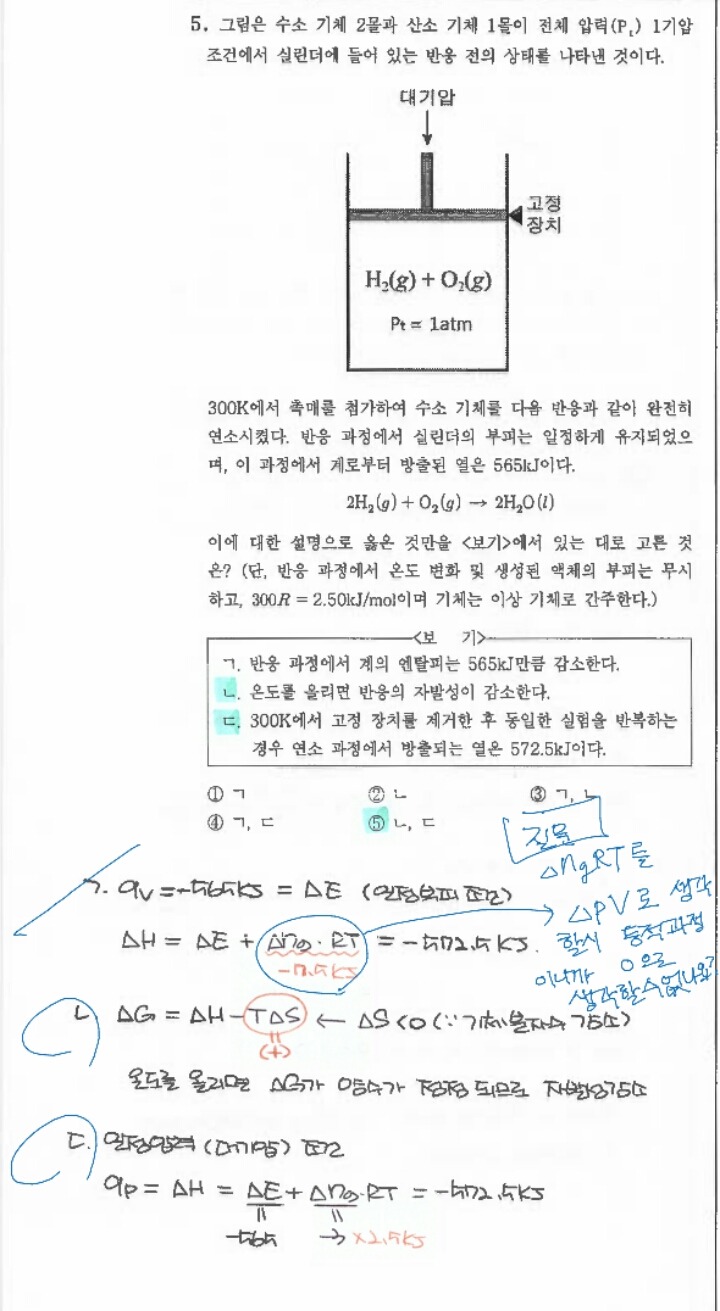 5. 그림은 수소 기체 2몰과 산소 기체 1몰이 전체 압력(Pₜ) 1기압
조건에서 실린더에 들어 있는 반응 전의 상태를 나타낸 것이다.
대기압
고정
장치
H₂(g) + O₂(g)
Pt = 1atm
300K에서 촉매를 첨가하여 수소 기체를 다음 반응과 같이 완전히
연소시켰다. 반응 과정에서 실린더의 부피는 일정하게 유지되었으
며, 이 과정에서 계로부터 방출된 열은 565kJ이다.
2H₂(g) + O₂(g) → 2H₂O(l)
이에 대한 설명으로 옳은 것만을 <보기>에서 있는 대로 고른 것
은? (단, 반응 과정에서 온도 변화 및 생성된 액체의 부피는 무시
하고, 300R = 2.50kJ/mol이며 기체는 이상 기체로 간주한다.)
<보 기>
ㄱ. 반응 과정에서 계의 엔탈피는 565kJ만큼 감소한다.
ㄴ. 온도를 올리면 반응의 자발성이 감소한다.
ㄷ. 300K에서 고정 장치를 제거한 후 동일한 실험을 반복하는
경우 연소 과정에서 방출되는 열은 572.5kJ이다.
① ㄱ ② ㄴ ③ ㄱ, ㄴ
④ ㄱ, ㄷ ⑤ ㄴ, ㄷ
질문
△ngRT를
△PV로 생각
할시 동적과정
이니까 0으로
생각할수없나요?
ㄱ. qv = -565kJ = △E (일정부피 조건)
△H = △E + △ng·RT = -572.5kJ.
-7.5kJ
ㄴ △G = △H - T△S ← △S<0 (∵기체분자수 감소)
(+)
온도를 올리면 △G가 양수가 점점 되므로 자발성감소
ㄷ. 일정압력 (대기압) 조건
qp = △H = △E + △ng·RT = -572.5kJ
-565 → ×2.5kJ